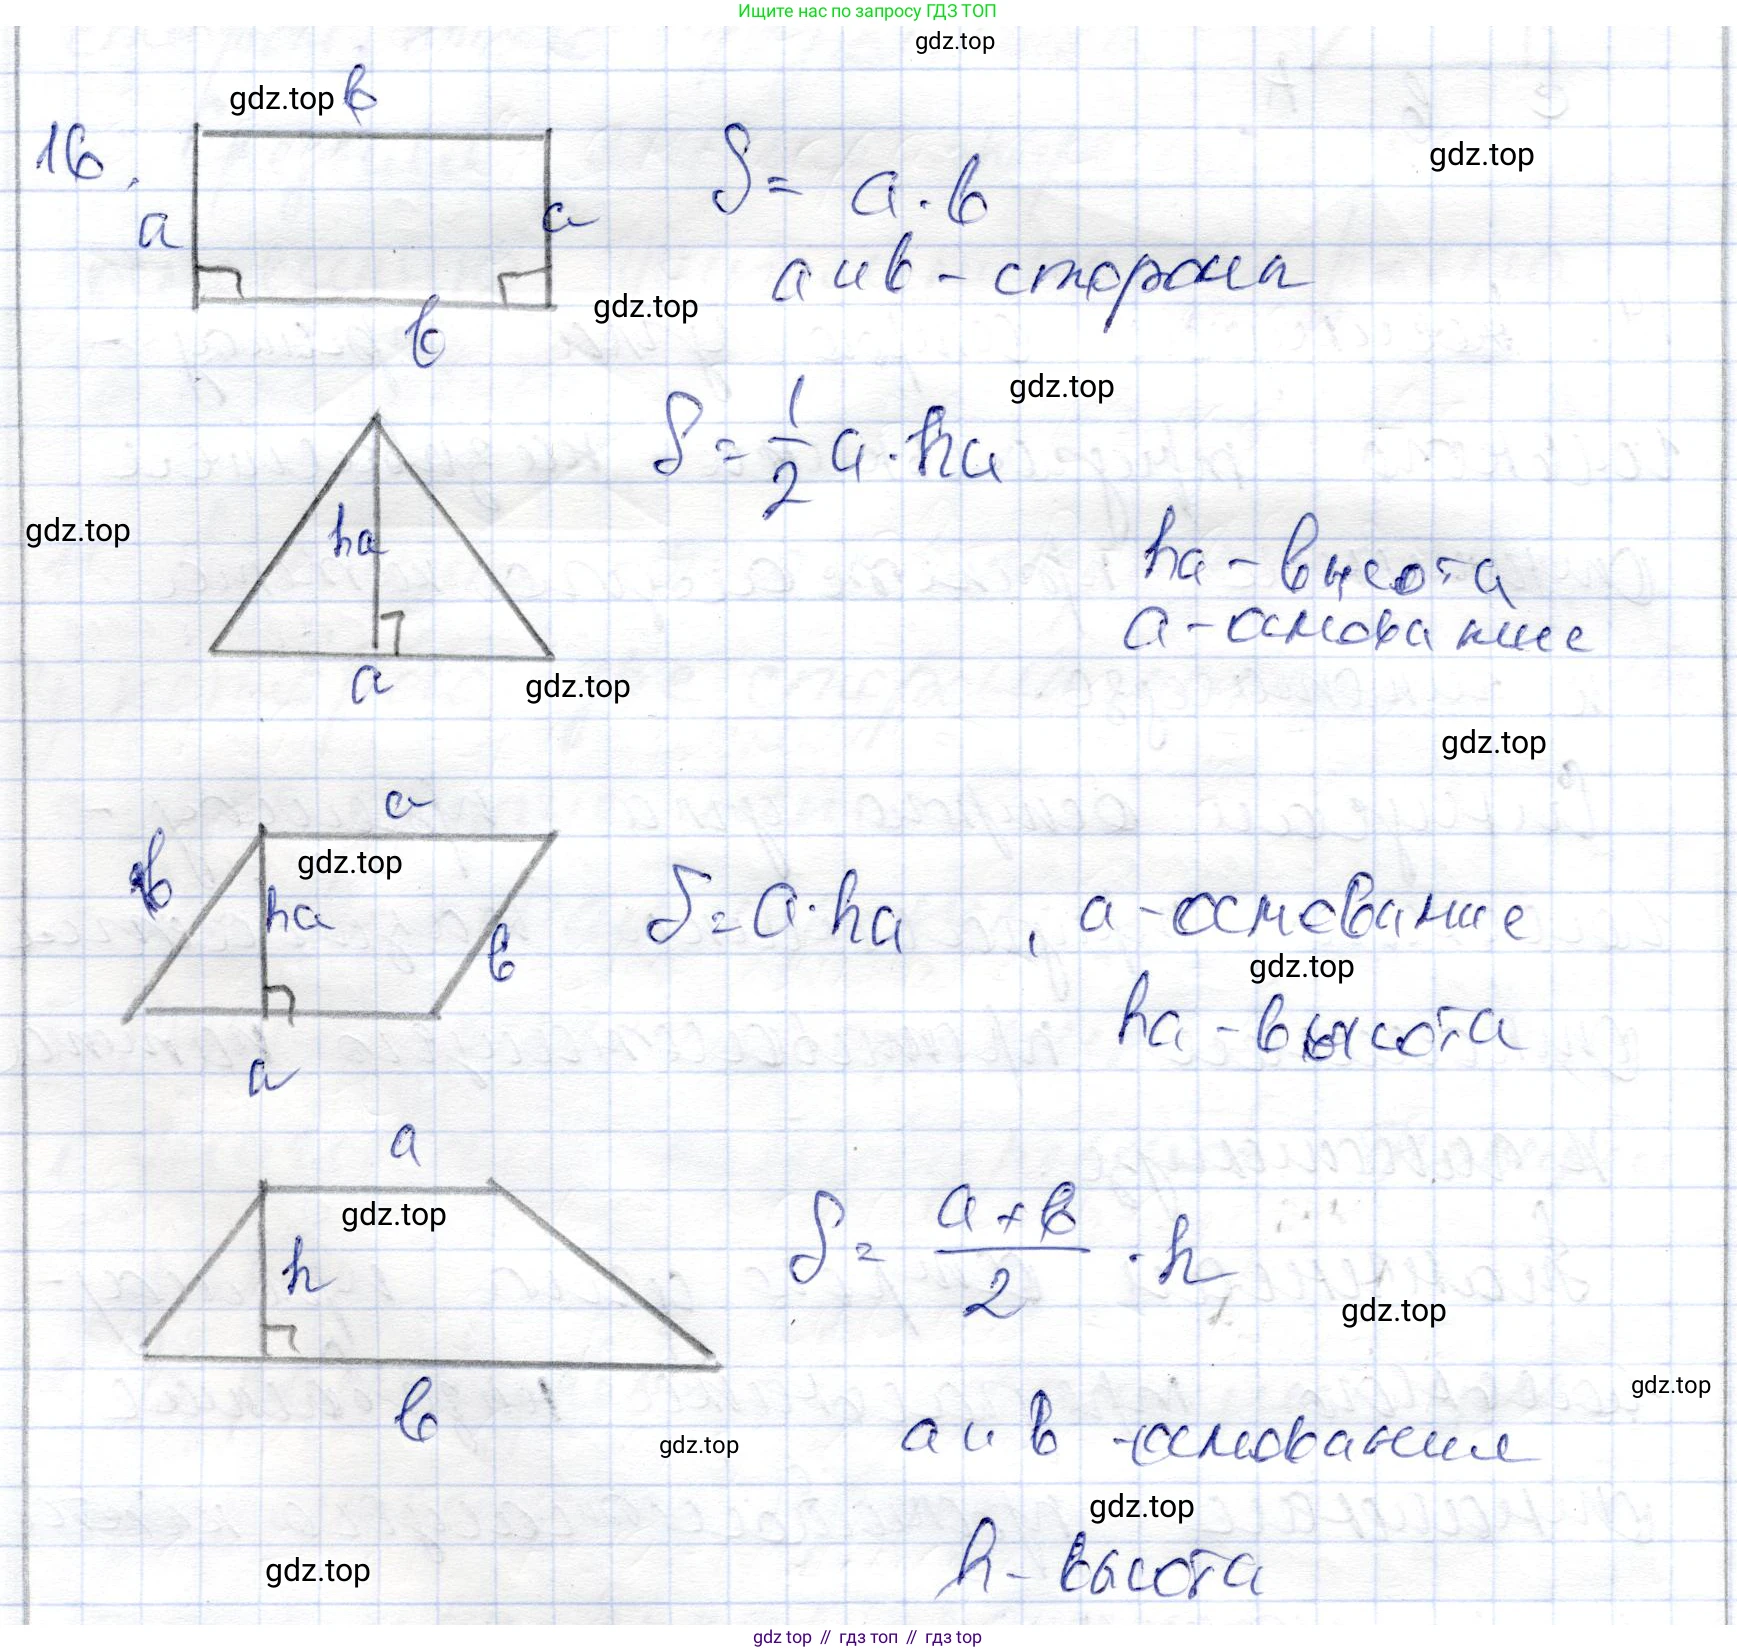 Ищите нас по запросу ГДЗ ТОП
gdz.top
gdz.top в
16.
a
a
в
S = a · в
a и в - сторона
gdz.top
gdz.top
gdz.top
S = 1/2 a · ha
ha
a
gdz.top
ha - высота
a - основание
gdz.top
gdz.top
a
в
gdz.top
ha
в
a
S = a · ha , a - основание
gdz.top
ha - высота
a
gdz.top
h
в
S = (a + в)/2 · h
gdz.top
gdz.top
gdz.top
a и в - основания
gdz.top
h - высота
gdz.top
gdz top // гдз топ // гдз top